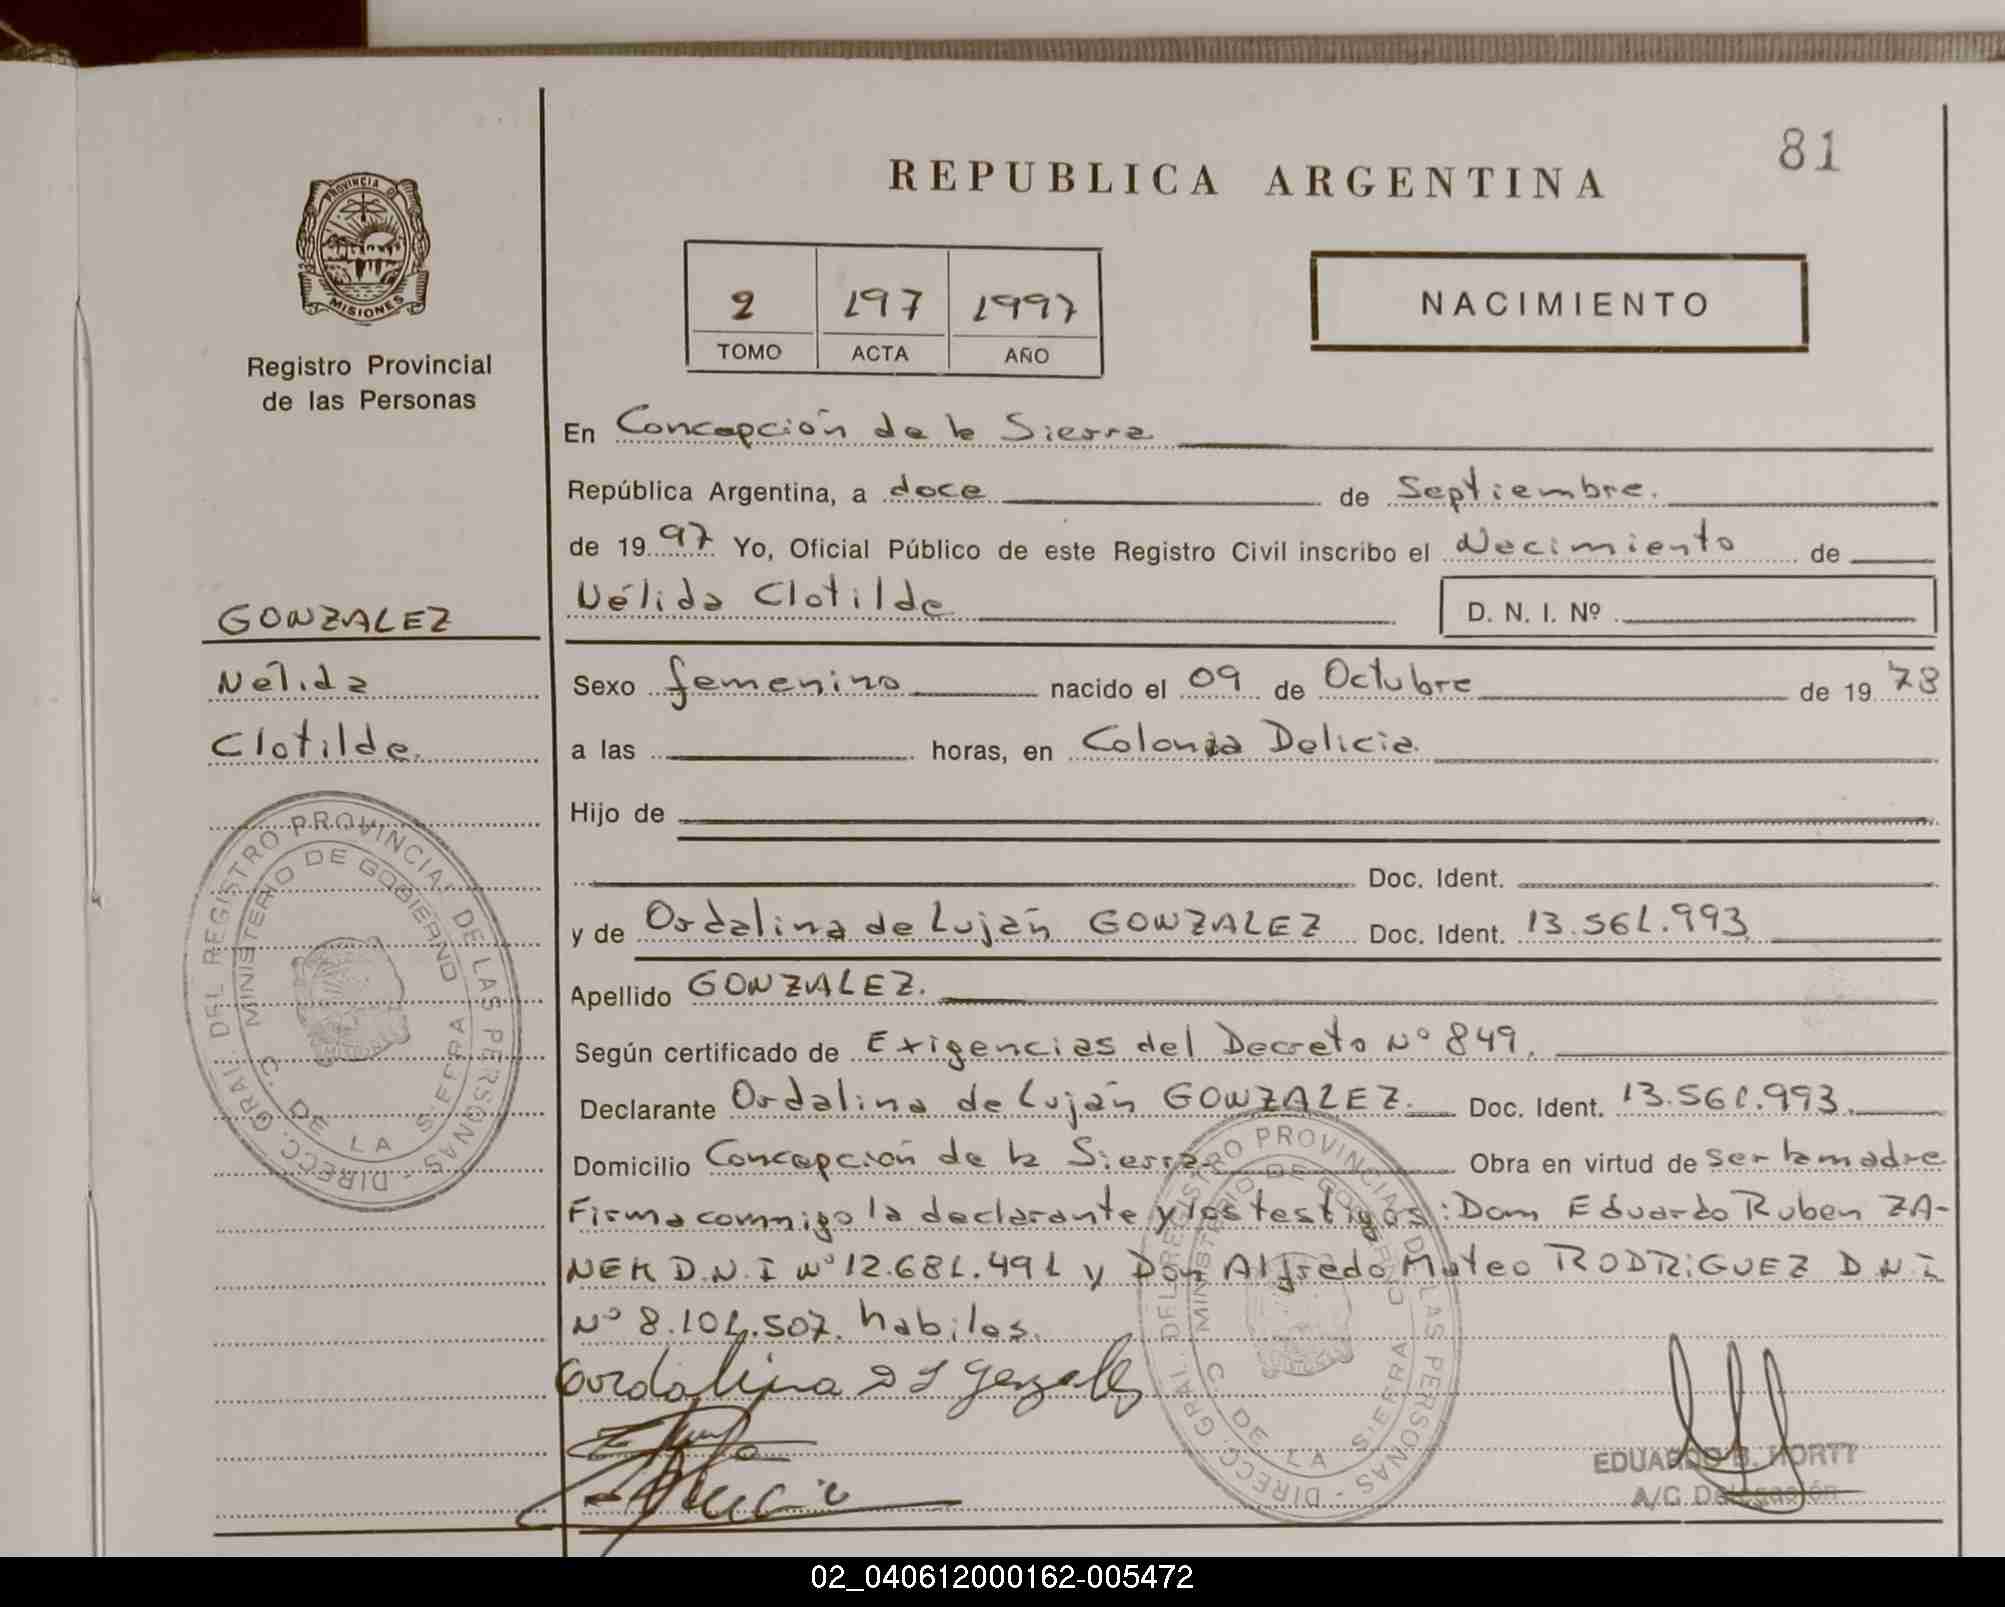 81
REPUBLICA ARGENTINA
PROVINCIA DE
MISIONES
Registro Provincial
de las Personas
2 197 1997
TOMO ACTA AÑO
NACIMIENTO
En Concepción de la Sierra
República Argentina, a doce de Septiembre.
de 1997 Yo, Oficial Público de este Registro Civil inscribo el Nacimiento de
Nélida Clotilde
D. N. I. Nº
GONZALEZ
Nélida
Clotilde.
Sexo femenino nacido el 09 de Octubre de 1978
a las horas, en Colonia Delicia.
Hijo de
Doc. Ident.
y de Ordalina de Luján GONZALEZ Doc. Ident. 13.561.993
Apellido GONZALEZ.
Según certificado de Exigencias del Decreto Nº 849.
Declarante Ordalina de Luján GONZALEZ. Doc. Ident. 13.561.993.
Domicilio Concepción de la Sierra Obra en virtud de ser la madre
Firma comnigo la declarante y los testigos: Dom Eduardo Ruben ZA-
NEK D.N.I Nº 12.681.491 y Don Alfredo Mateo RODRIGUEZ D N I
Nº 8.101.507. habiles.
Ordalina D L Gonzalez
DIRECC. GRAL. DEL REGISTRO PROVINCIAL DE LAS PERSONAS
MINISTERIO DE GOBIERNO
C. DE LA SIERRA
DIRECC. GRAL. DEL REGISTRO PROVINCIAL DE LAS PERSONAS
MINISTERIO DE GOBIERNO
C. DE LA SIERRA
EDUARDO B. HORTT
A/C Delegación
02_040612000162-005472